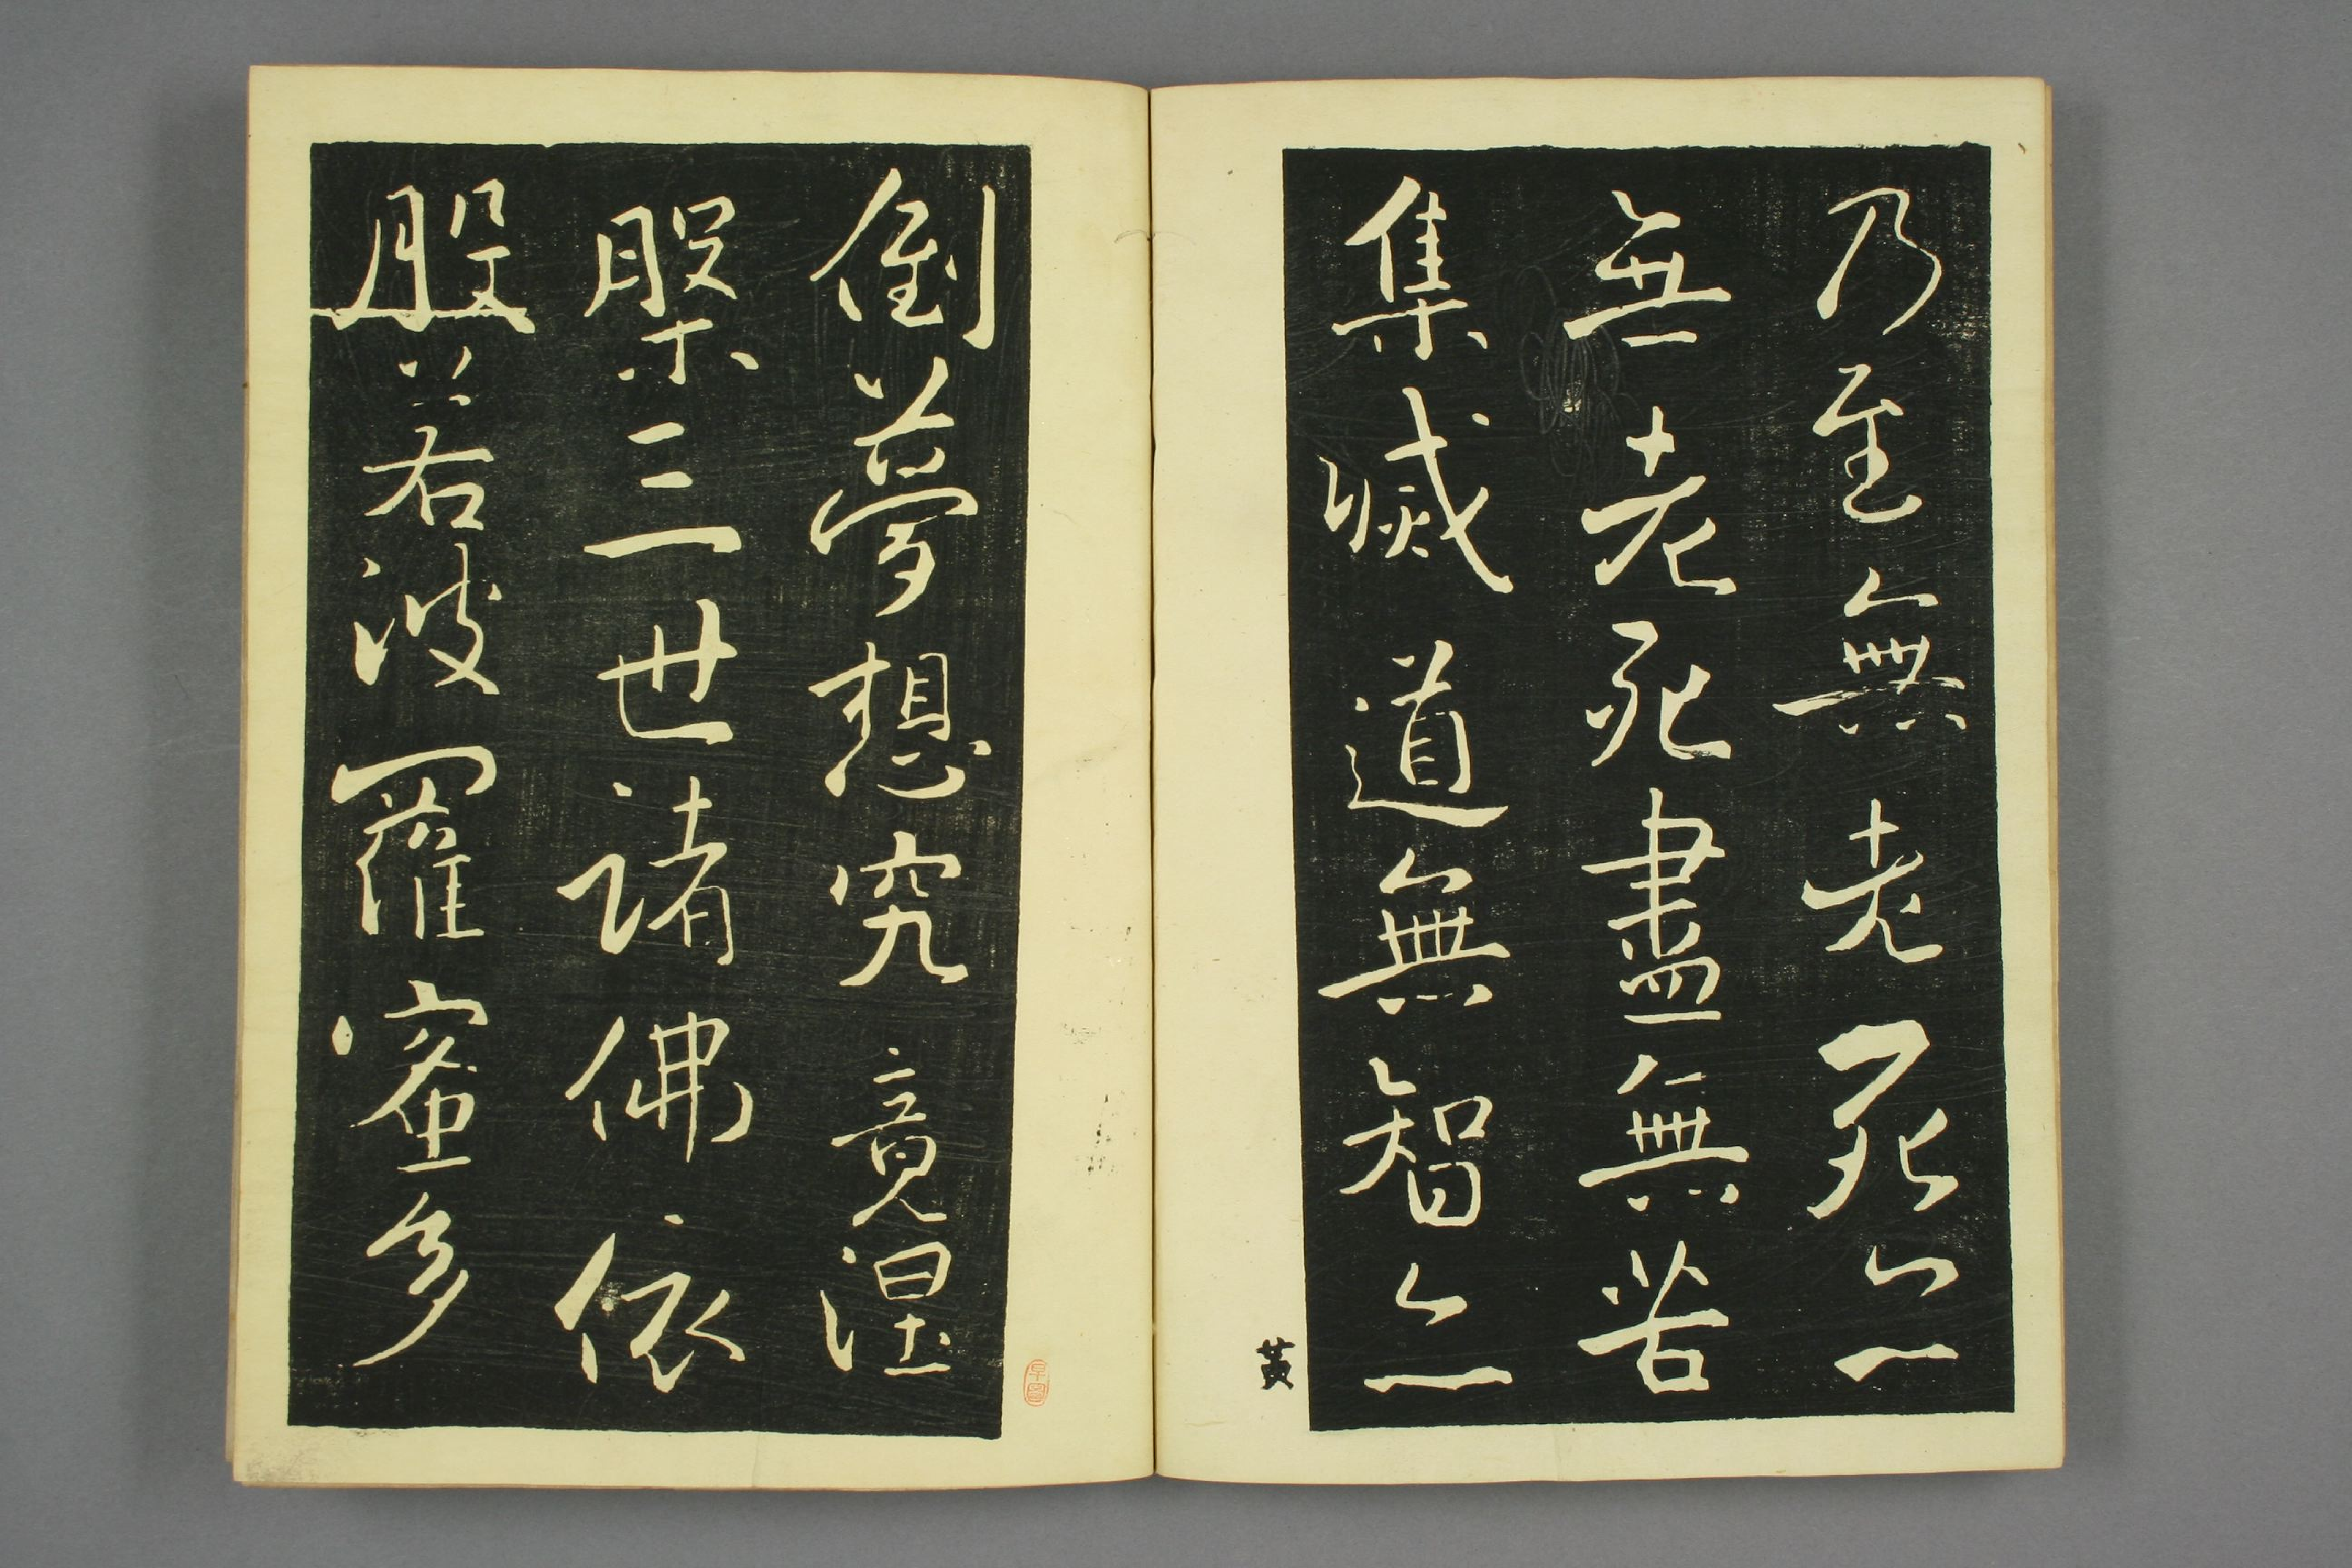 乃至無老死亦
無老死盡無苦
集滅道無智亦
黃
倒夢想究竟涅
槃三世諸佛依
般若波羅蜜多